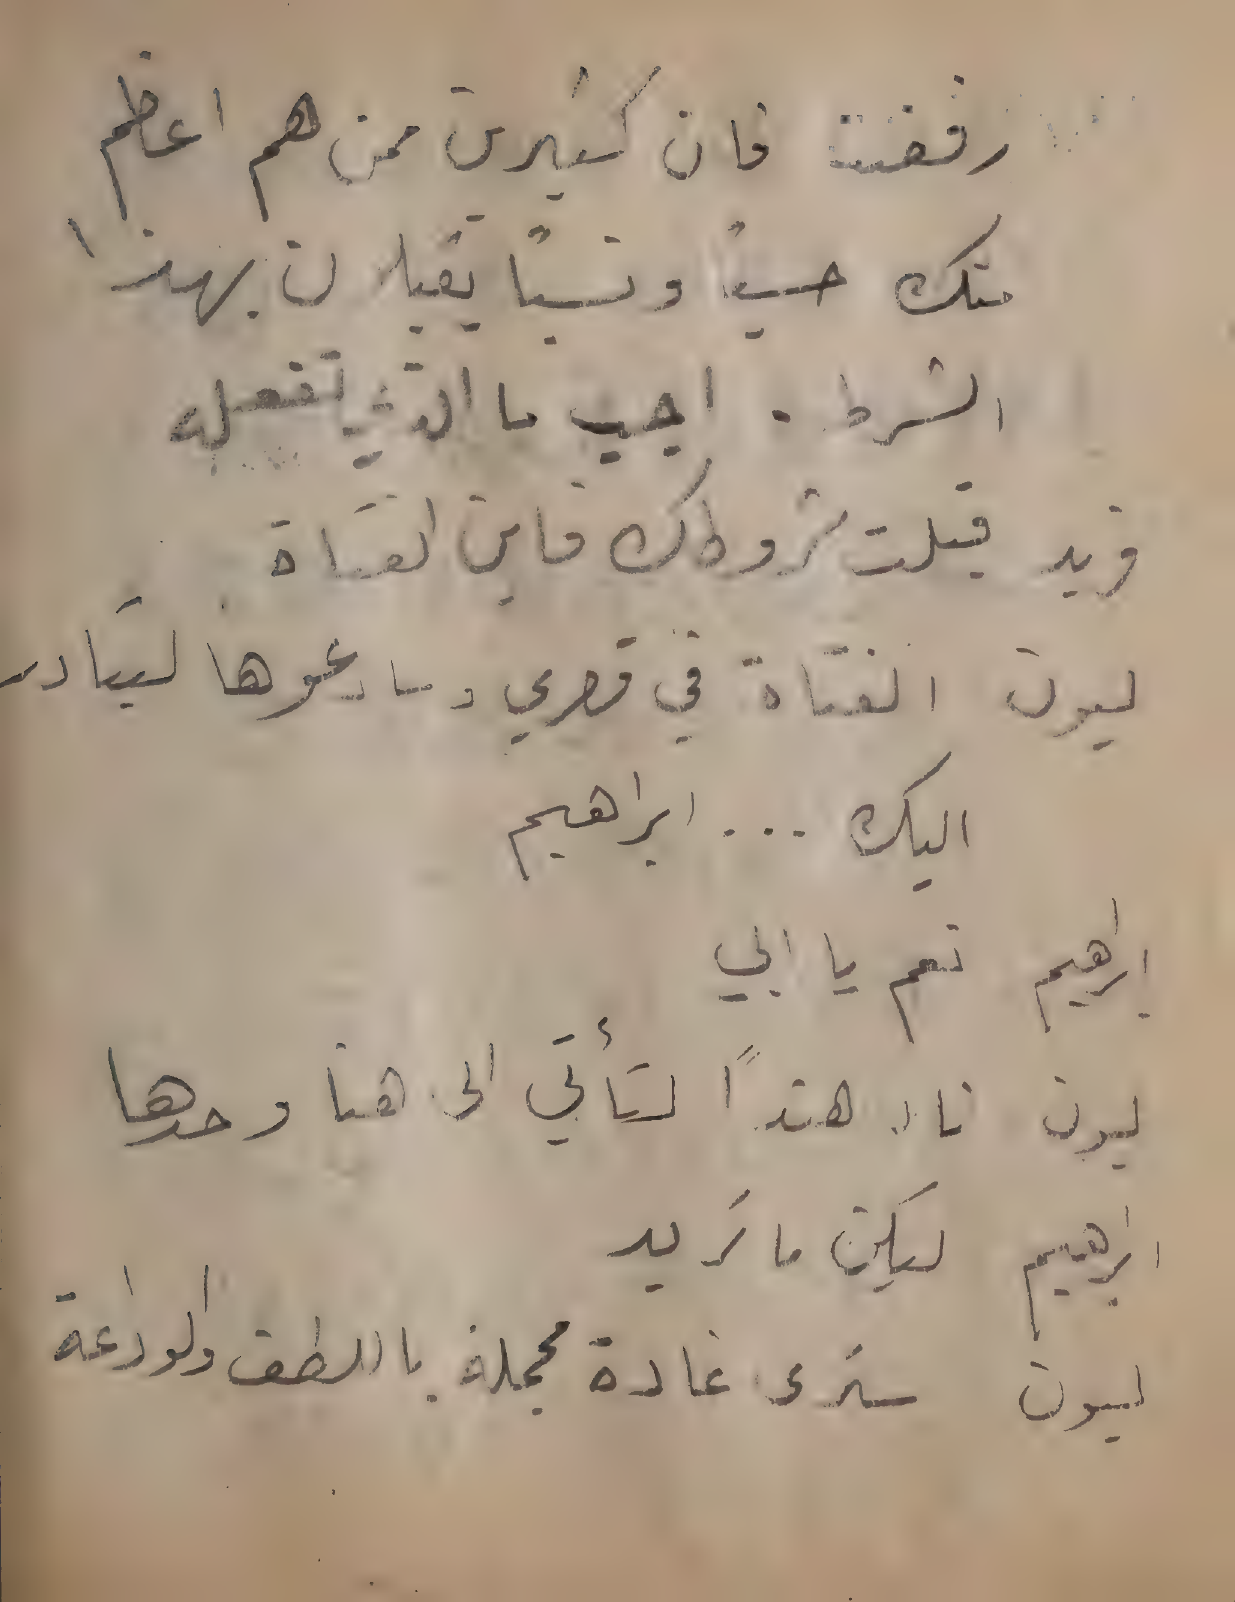 رفضت فان كثيرين ممن هم اعظم
منك حسبًا ونسبًا يقبلان بهذا
الشرط. اجب ما الذي تفعله
فريد قبلت شروطك فاين الفتاة
ليون الفتاة في قصري وسادعوها لتبادر
اليك ... ابراهيم
ابراهيم نعم يا ابي
ليون ناد هندًا لتأتي الى هنا وحدها
ابراهيم ليكن ما تريد
ليون سترى غادة مجملة باللطف والوداعة